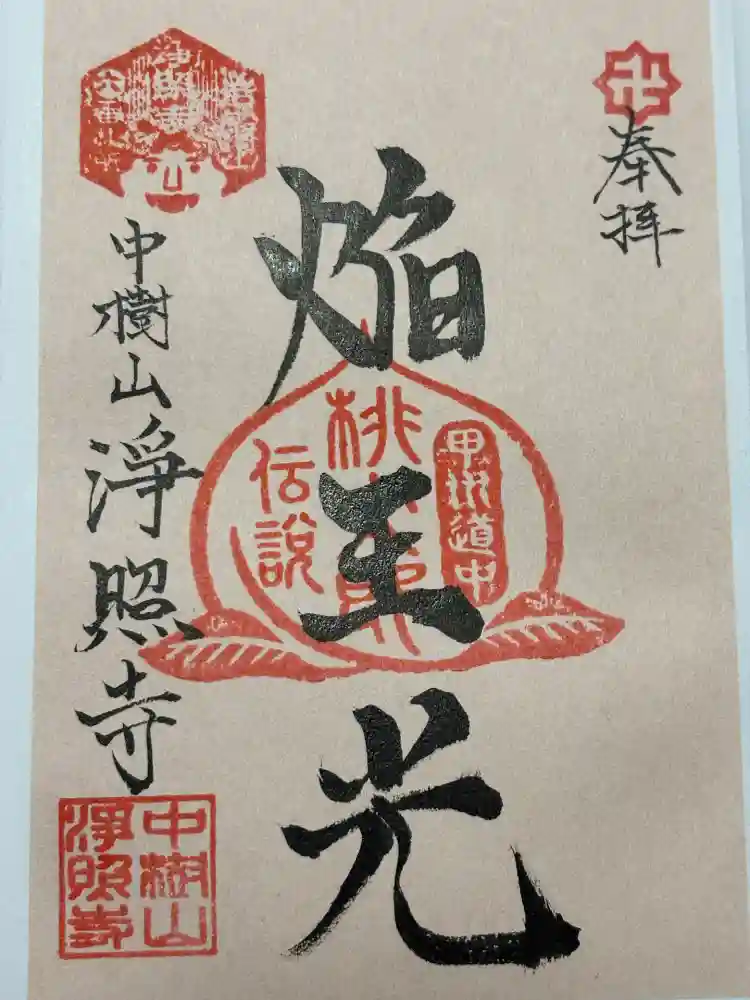 卍
奉拝
焔王光
甲州道中
桃太郎
伝説
中樹山淨照寺
中樹山
淨照寺